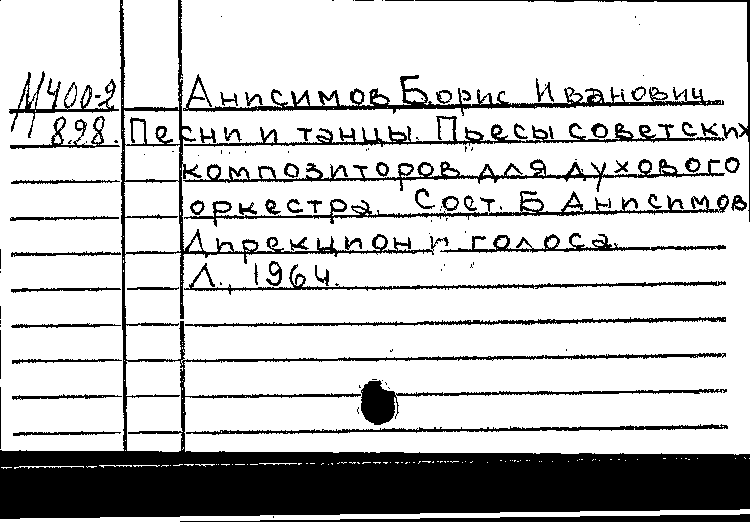 М400-2 Анисимов, Борис Иванович
898. Песни и танцы. Пьесы советских
композиторов для духового
оркестра. Сост. Б Анисимов
Дирекцион и голоса.
Л., 1964.